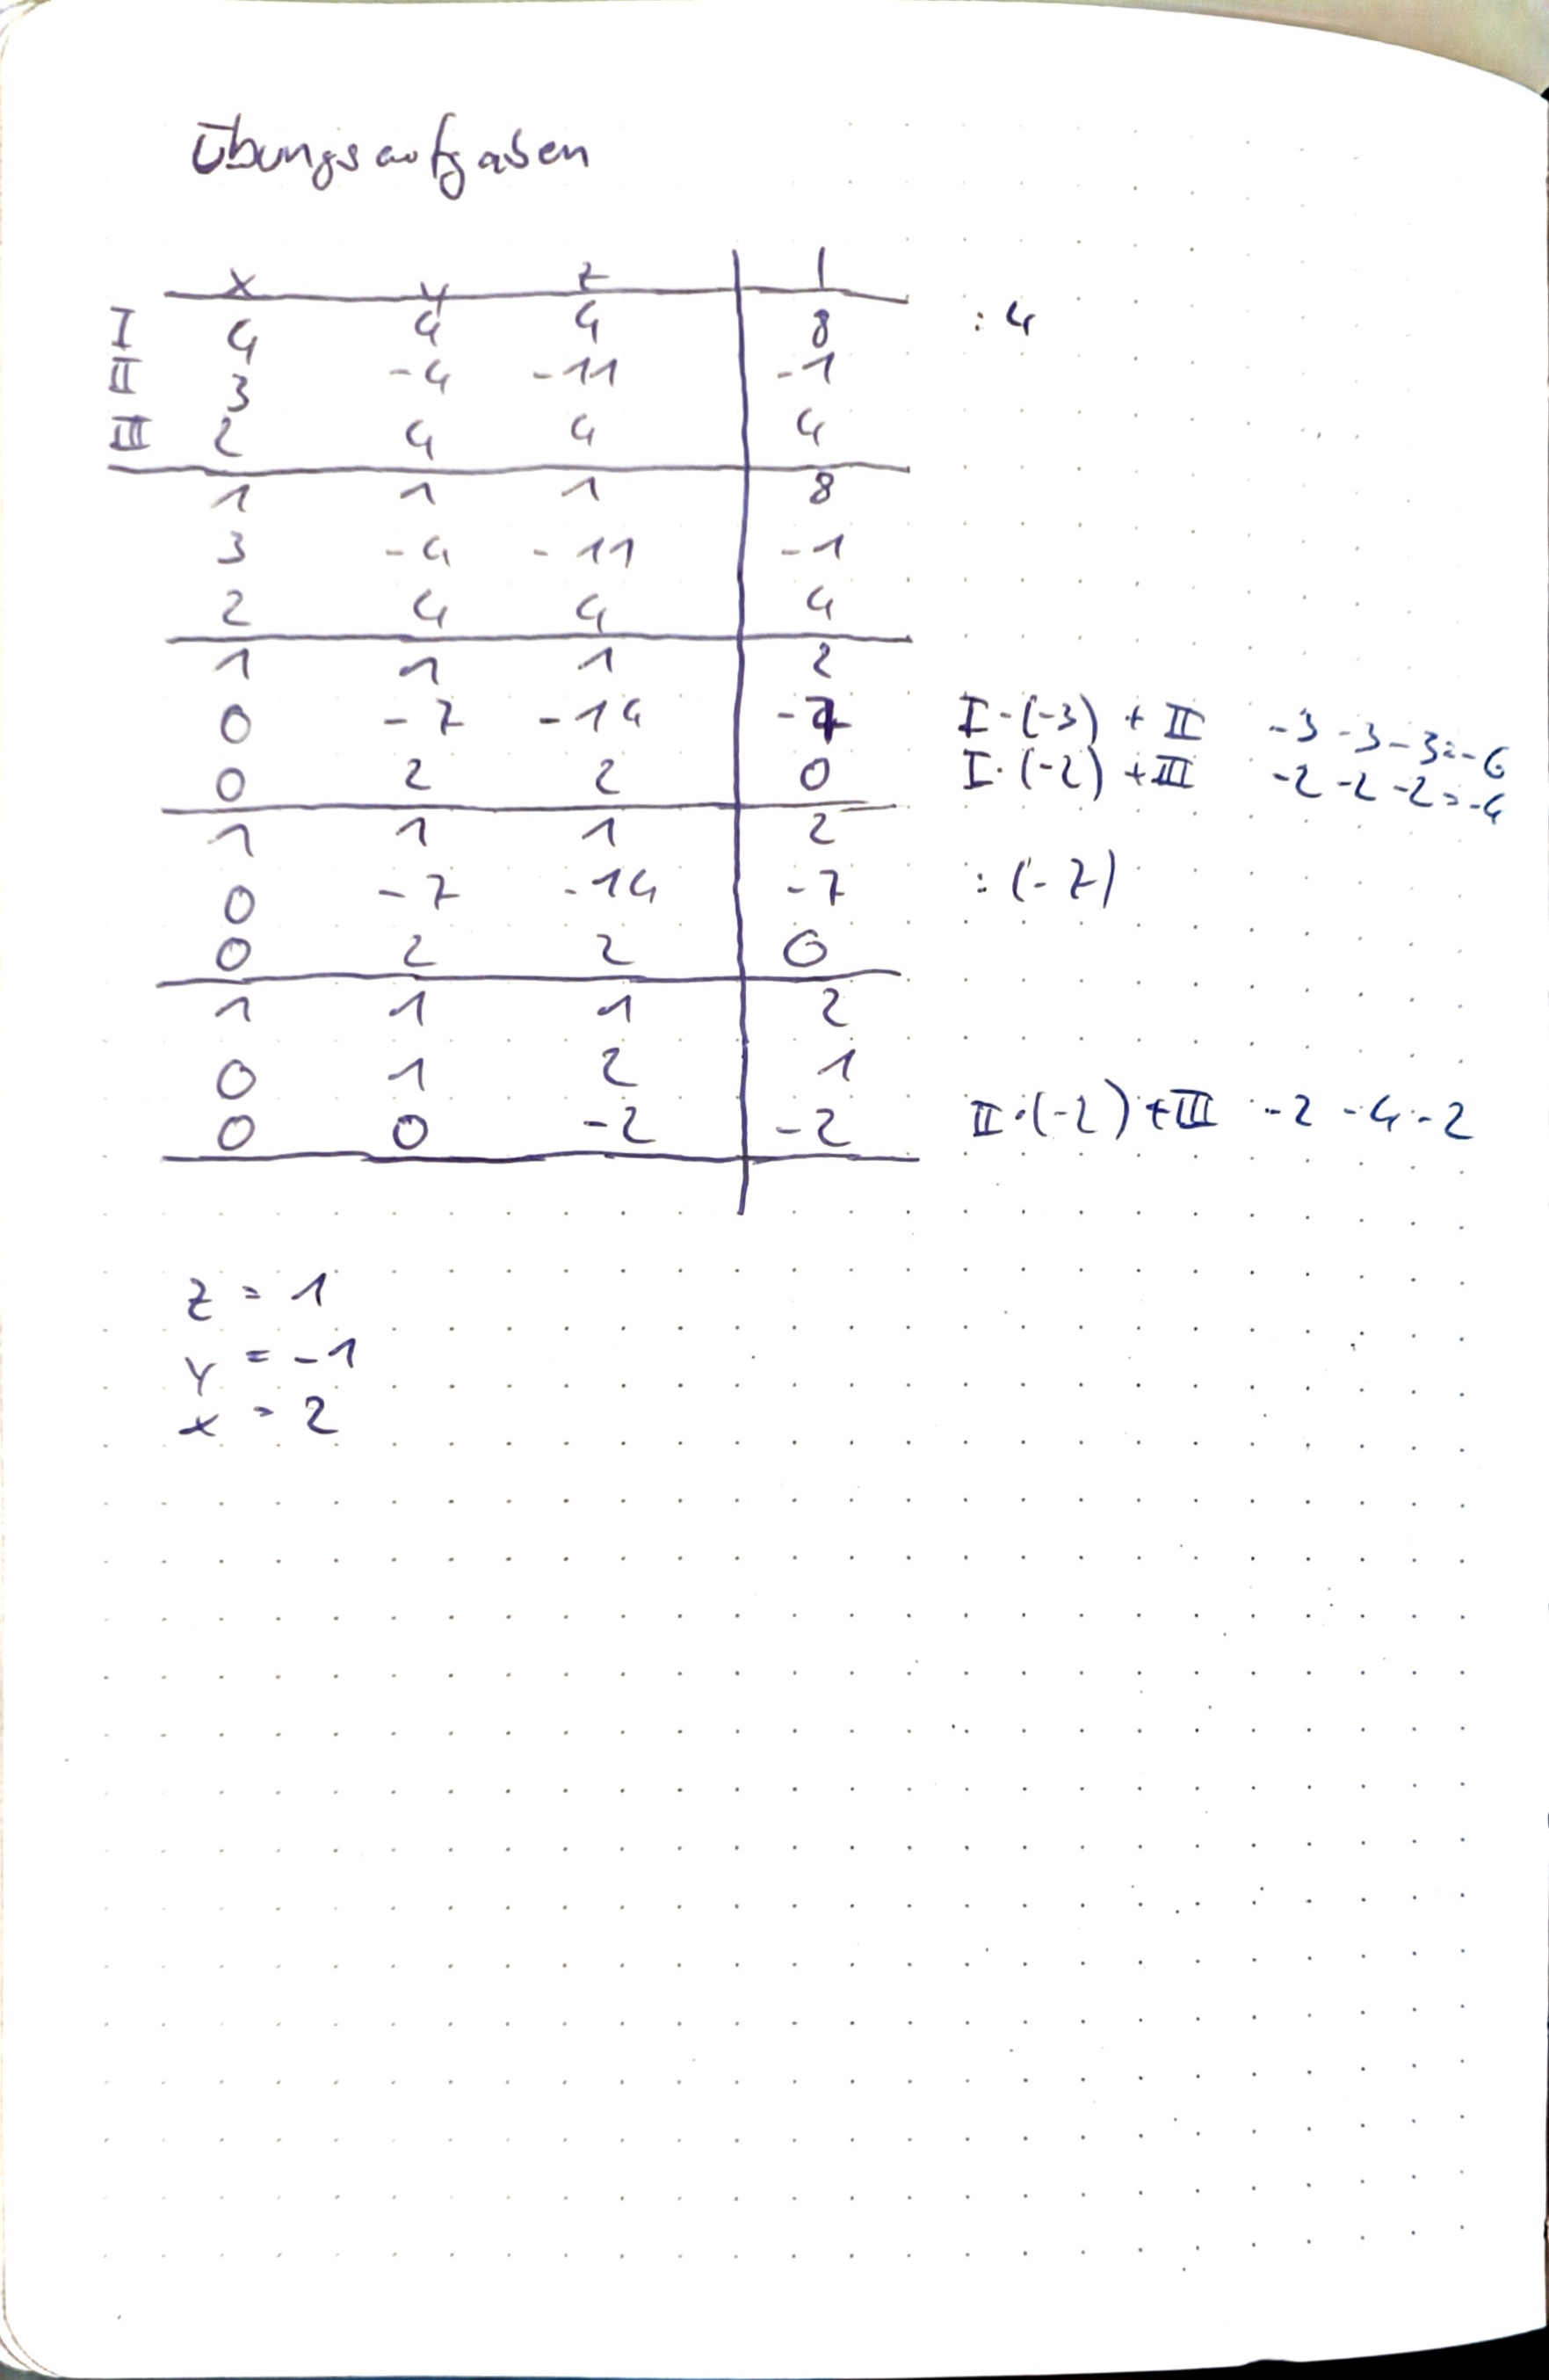 Übungsaufgaben
x y z 1
I 4 4 4 8 : 4
II 3 -4 -11 -1
III 2 4 4 4
1 1 1 8
3 -4 -11 -1
2 4 4 4
1 1 1 2
0 -7 -14 -7 I·(-3) + II -3 -3 -3 = -6
0 2 2 0 I·(-2) + III -2 -2 -2 = -4
1 1 1 2
0 -7 -14 -7 : (-7)
0 2 2 0
1 1 1 2
0 1 2 1
0 0 -2 -2 II·(-2) + III -2 -4 -2
z = 1
y = -1
x = 2